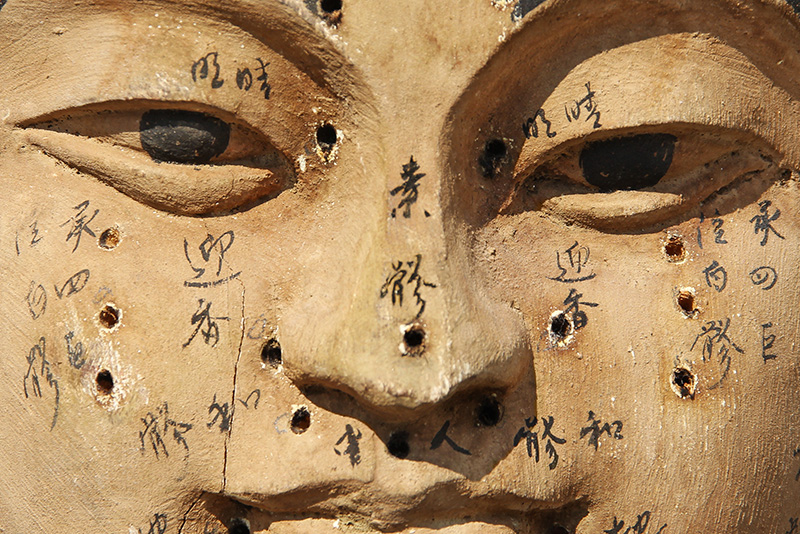 睛明
睛明
素髎
承泣
四白
巨髎
迎香
迎香
承泣
四白
巨髎
和髎
人
和髎